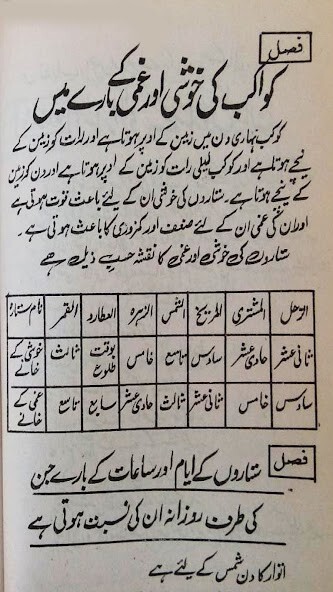 فصل
کواکب کی خوشی اور غمی کے بارے میں
کوکب نہاری دن میں زمین کے اوپر ہوتا ہے اور رات کو زمین کے
نیچے ہوتا ہے اور کوکب لیلی رات کو زمین کے اوپر ہوتا ہے اور دن کو زمین
کے نیچے ہوتا ہے۔ ستاروں کی خوشی ان کے لیئے باعث قوت ہوتی ہے
اور ان کی غمی ان کے لئے ضعف اور کمزوری کا باعث ہوتی ہے۔
ستاروں کی خوشی اور غمی کا نقشہ حسبِ ذیل ہے
نام ستارہ القمر العطارد الزہرہ الشمس المریخ المشتری الزحل
خوشی کے خانے ثالث بوقت طلوع خامس تاسع سادس حادی عشر ثانی عشر
غمی کے خانے تاسع سابع حادی عشر ثالث ثانی عشر خامس سادس
فصل
ستاروں کے ایام اور ساعات کے بارے جن
کی طرف روزانہ ان کی نسبت ہوتی ہے
اتوار کا دن شمس کے لیئے ہے